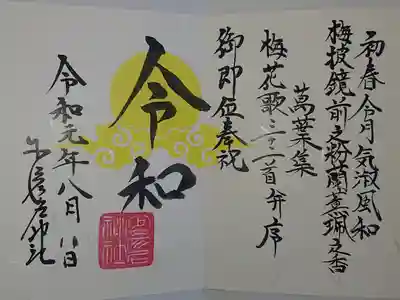 初春令月気淑風和
梅披鏡前之粉蘭薫珮之香
萬葉集
梅花歌三十二首并序
御即位奉祝
令和
令和元年八月八日
神社